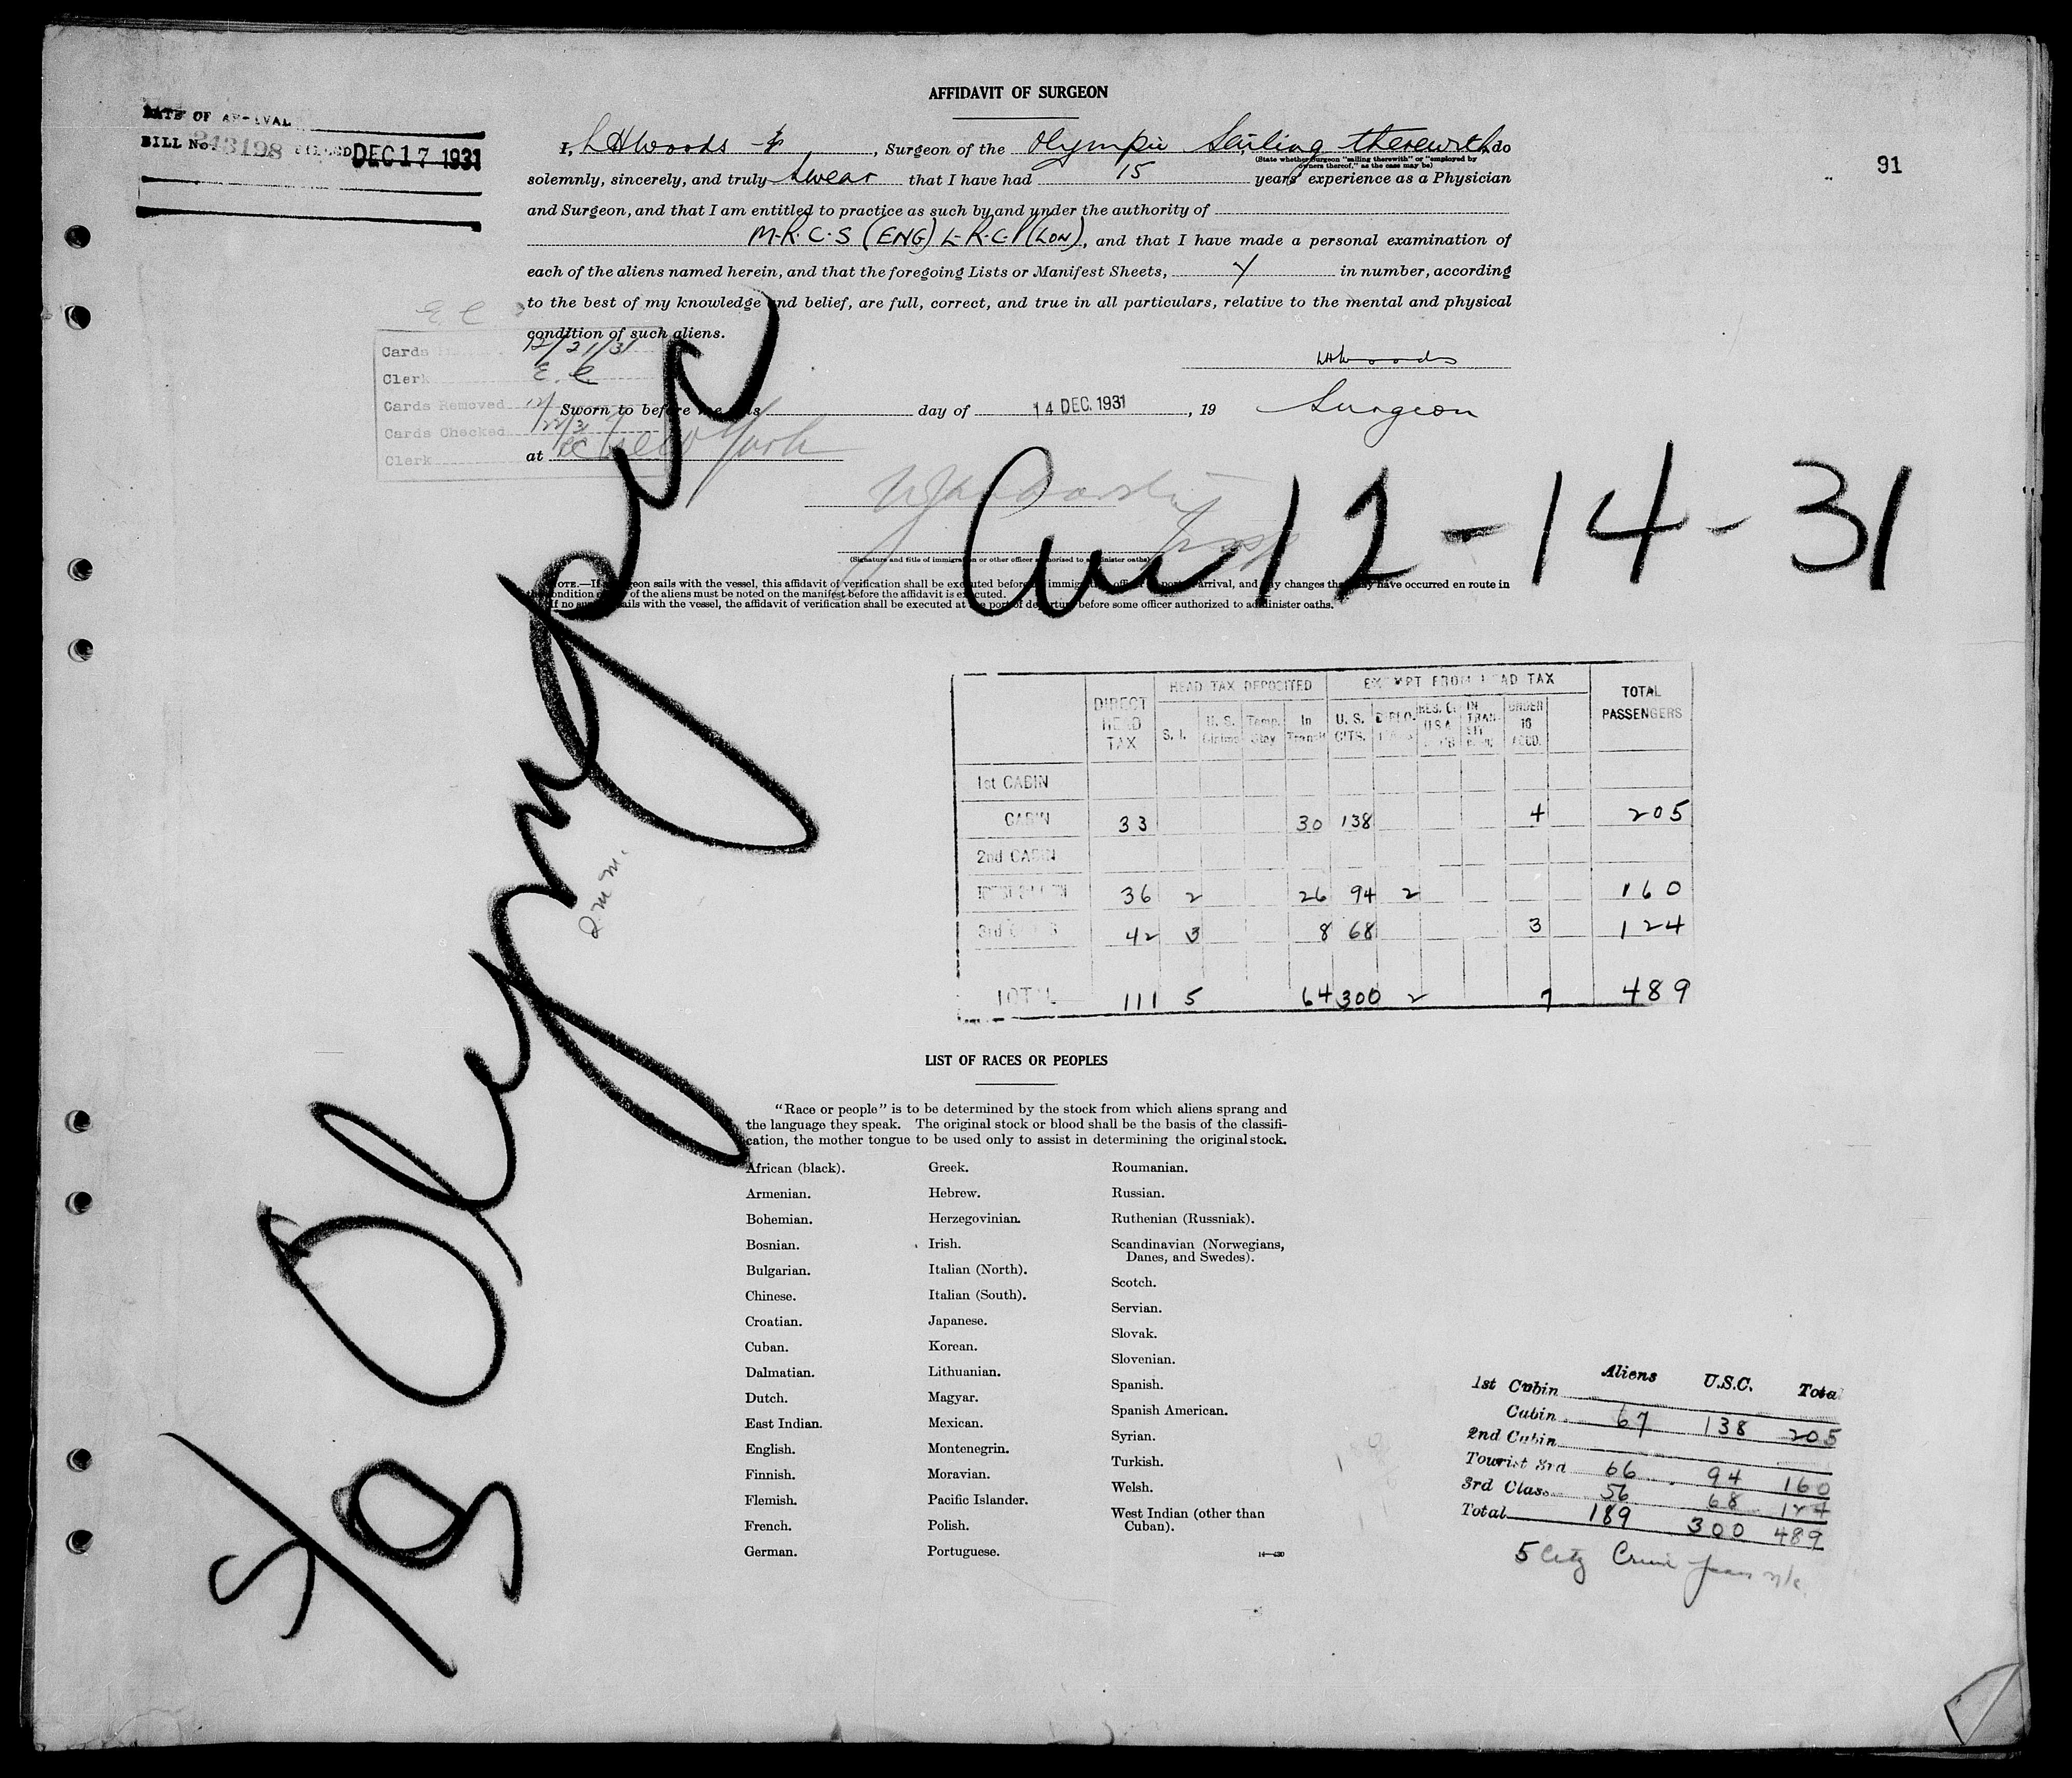 AFFIDAVIT OF SURGEON
DATE OF ARRIVAL
BILL No. 243198 FILED DEC 17 1931
91
I, LHWoods, Surgeon of the Olympic Sailing therewith, do
(State whether surgeon "sailing therewith" or "employed by
owners thereof," as the case may be)
solemnly, sincerely, and truly swear that I have had 15 years' experience as a Physician
and Surgeon, and that I am entitled to practice as such by and under the authority of
M.R.C.S (ENG) L.R.C.P (LON), and that I have made a personal examination of
each of the aliens named herein, and that the foregoing Lists or Manifest Sheets, in number, according
to the best of my knowledge and belief, are full, correct, and true in all particulars, relative to the mental and physical
condition of such aliens.
E C
Cards 12/21/31
Clerk E. C.
Cards Removed 12/
Cards Checked 22/31
Clerk EC
LHWoods
Sworn to before me this day of 14 DEC. 1931, 19 Surgeon
at New York
Arr 12-14-31
(Signature and title of immigration or other officer authorized to administer oaths)
NOTE.—If surgeon sails with the vessel, this affidavit of verification shall be executed before immigration officer at port of arrival, and any changes that may have occurred en route in
the condition of any of the aliens must be noted on the manifest before the affidavit is executed.
If no surgeon sails with the vessel, the affidavit of verification shall be executed at the port of departure before some officer authorized to administer oaths.
S/S Olympic
DIRECT HEAD TAX | HEAD TAX DEPOSITED | EXEMPT FROM HEAD TAX | TOTAL PASSENGERS
S. I. | U. S. Claims | Temp. Stay | In Transit | U. S. CITS. | DIPLO. | RES. OF U S A | IN TRANSIT | UNDER 16 ACCD.
1st CABIN
CABIN 33 30 138 4 205
2nd CABIN
TOURIST 3rd CABIN 36 2 26 94 2 160
3rd CLASS 42 3 8 68 3 124
TOTAL 111 5 64 300 2 7 489
LIST OF RACES OR PEOPLES
"Race or people" is to be determined by the stock from which aliens sprang and
the language they speak. The original stock or blood shall be the basis of the classifi-
cation, the mother tongue to be used only to assist in determining the original stock.
African (black).
Armenian.
Bohemian.
Bosnian.
Bulgarian.
Chinese.
Croatian.
Cuban.
Dalmatian.
Dutch.
East Indian.
English.
Finnish.
Flemish.
French.
German.
Greek.
Hebrew.
Herzegovinian.
Irish.
Italian (North).
Italian (South).
Japanese.
Korean.
Lithuanian.
Magyar.
Mexican.
Montenegrin.
Moravian.
Pacific Islander.
Polish.
Portuguese.
Roumanian.
Russian.
Ruthenian (Russniak).
Scandinavian (Norwegians,
Danes, and Swedes).
Scotch.
Servian.
Slovak.
Slovenian.
Spanish.
Spanish American.
Syrian.
Turkish.
Welsh.
West Indian (other than
Cuban).
Aliens U.S.C. Total
1st Cabin
Cabin 67 138 205
2nd Cabin
Tourist 3rd 66 94 160
3rd Class 56 68 124
Total 189 300 489